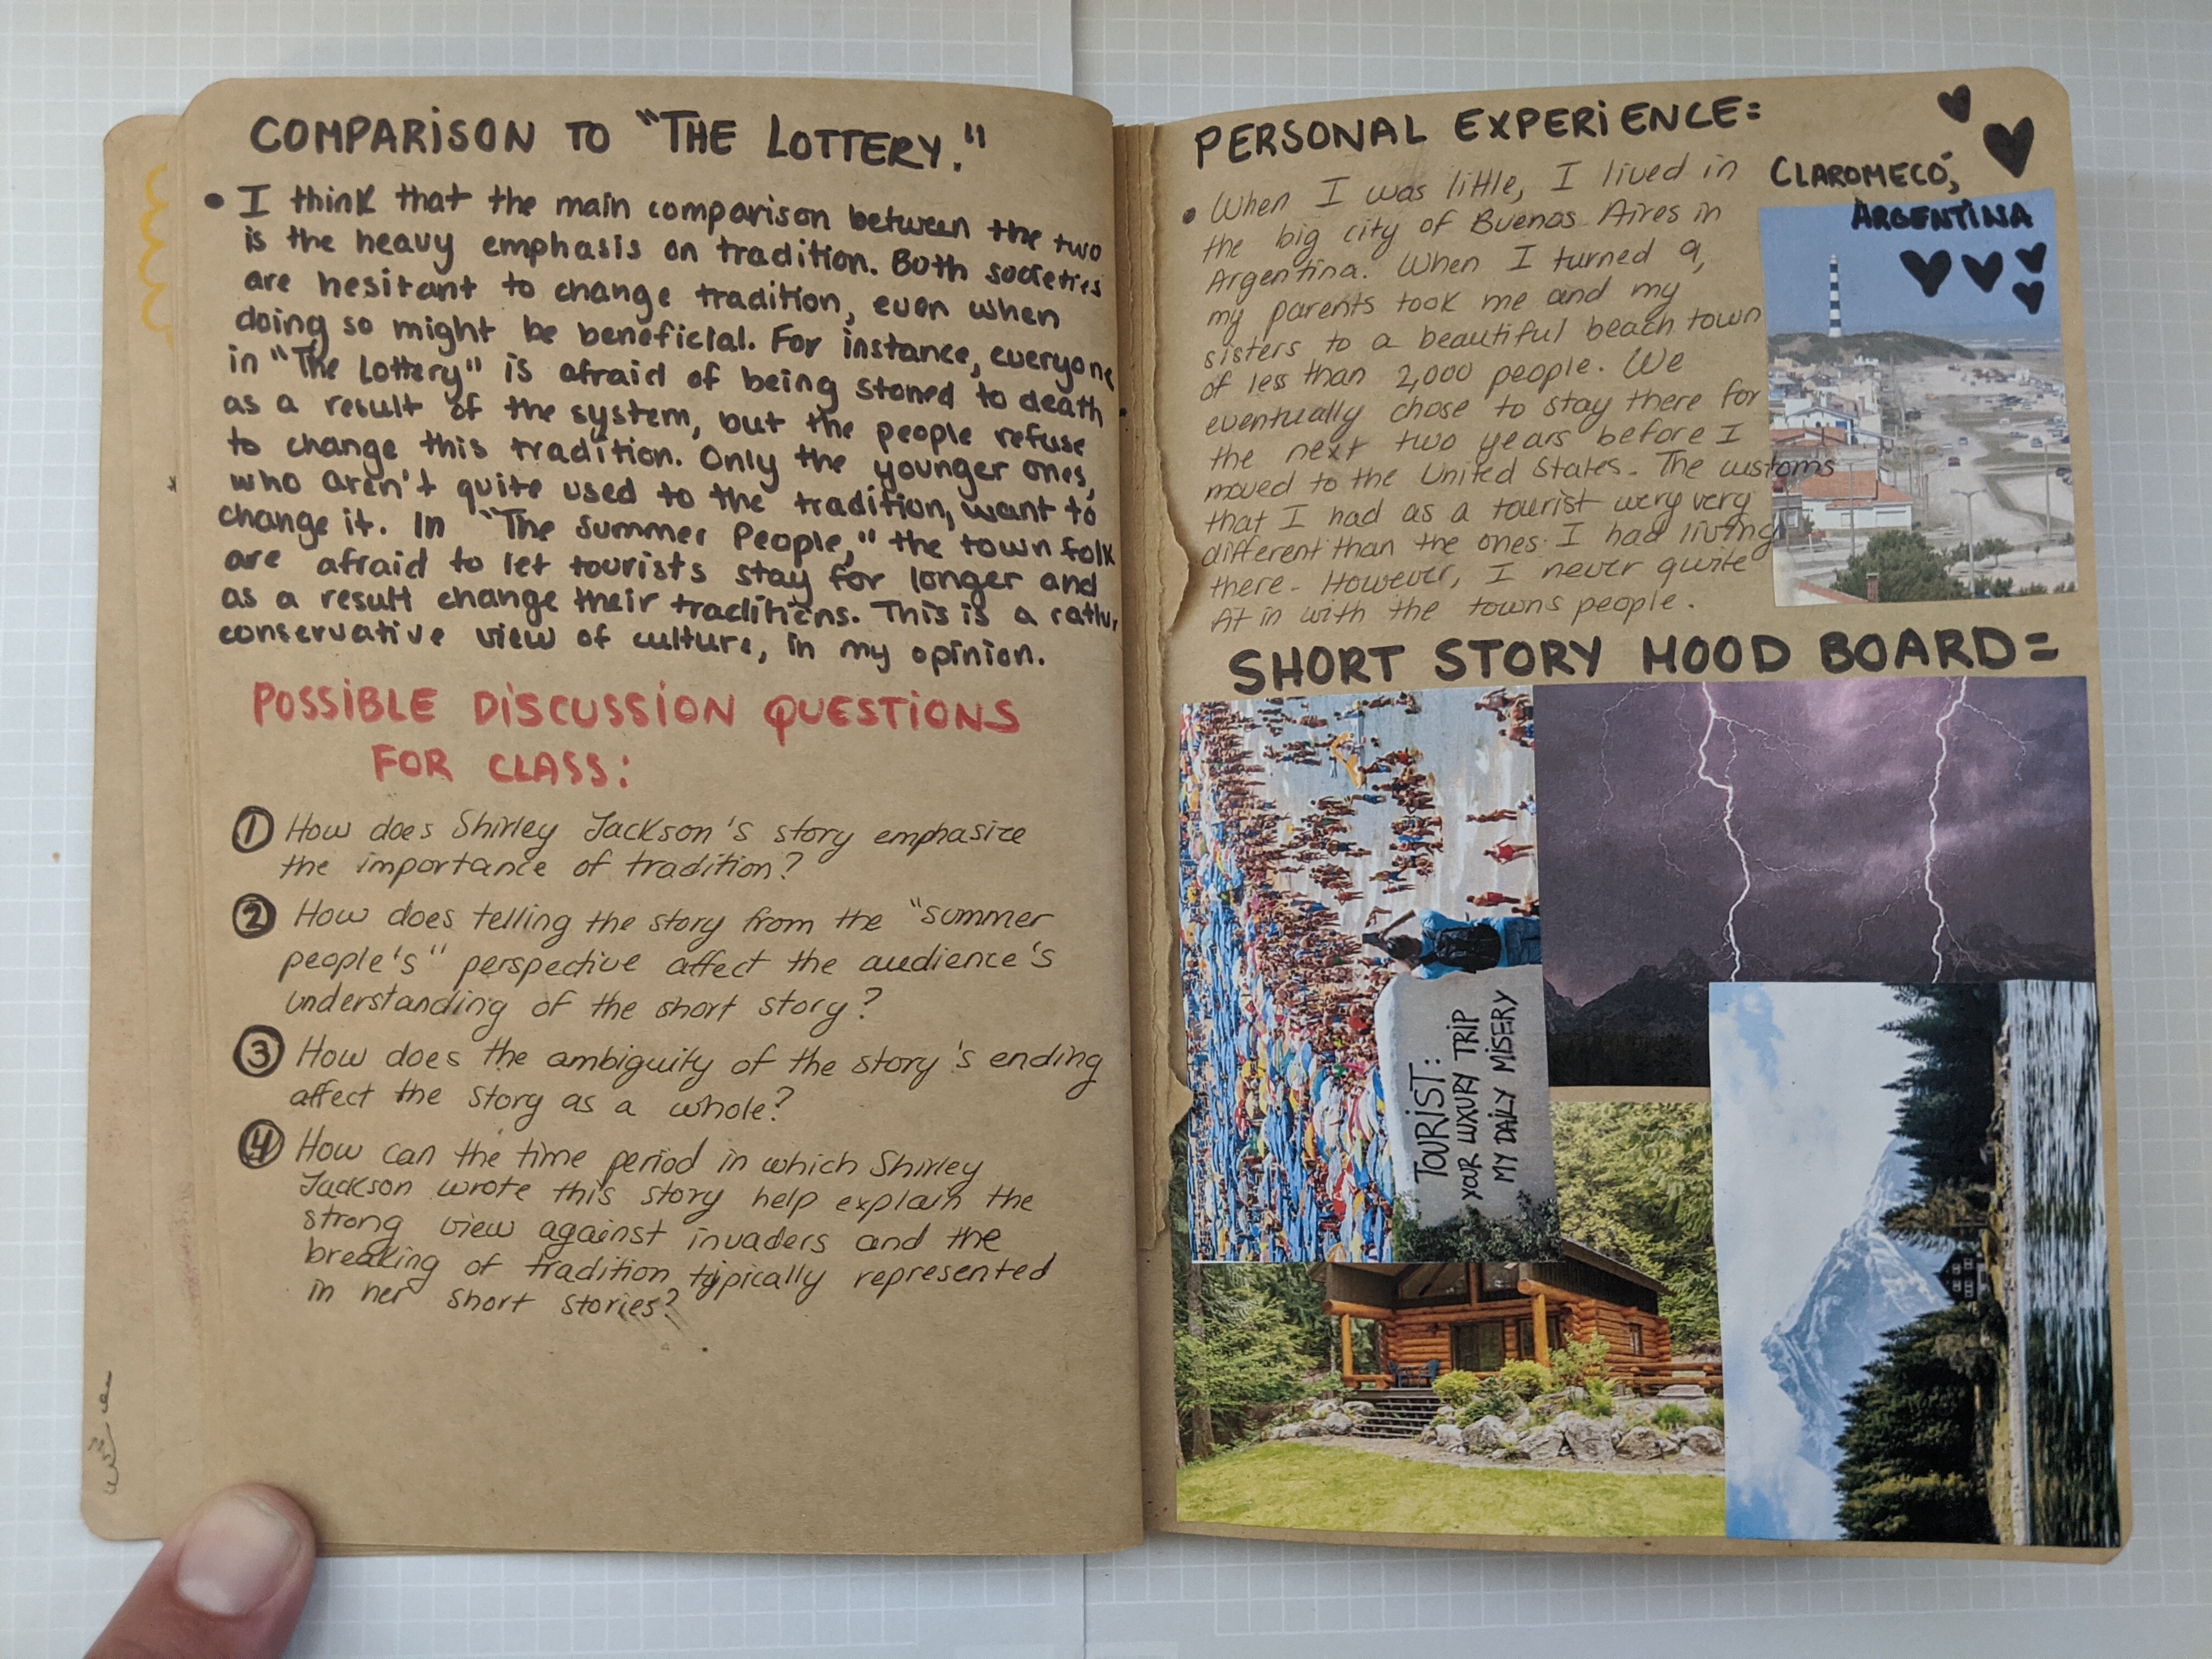 COMPARISON TO "THE LOTTERY."
• I think that the main comparison between the two
is the heavy emphasis on tradition. Both societies
are hesitant to change tradition, even when
doing so might be beneficial. For instance, everyone
in "The Lottery" is afraid of being stoned to death
as a result of the system, but the people refuse
to change this tradition. Only the younger ones,
who aren't quite used to the tradition, want to
change it. In "The Summer People," the town folk
are afraid to let tourists stay for longer and
as a result change their traditions. This is a rather
conservative view of culture, in my opinion.
POSSIBLE DISCUSSION QUESTIONS
FOR CLASS:
① How does Shirley Jackson's story emphasize
the importance of tradition?
② How does telling the story from the "summer
people's" perspective affect the audience's
understanding of the short story?
③ How does the ambiguity of the story's ending
affect the story as a whole?
④ How can the time period in which Shirley
Jackson wrote this story help explain the
strong view against invaders and the
breaking of tradition typically represented
in her short stories?
PERSONAL EXPERIENCE:
• When I was little, I lived in
the big city of Buenos Aires in
Argentina. When I turned 9,
my parents took me and my
sisters to a beautiful beach town
of less than 2,000 people. We
eventually chose to stay there for
the next two years before I
moved to the United States. The customs
that I had as a tourist very very
different than the ones I had living
there. However, I never quite
fit in with the towns people.
CLAROMECÓ,
ARGENTINA
SHORT STORY MOOD BOARD=
TOURIST:
YOUR LUXURY TRIP
MY DAILY MISERY